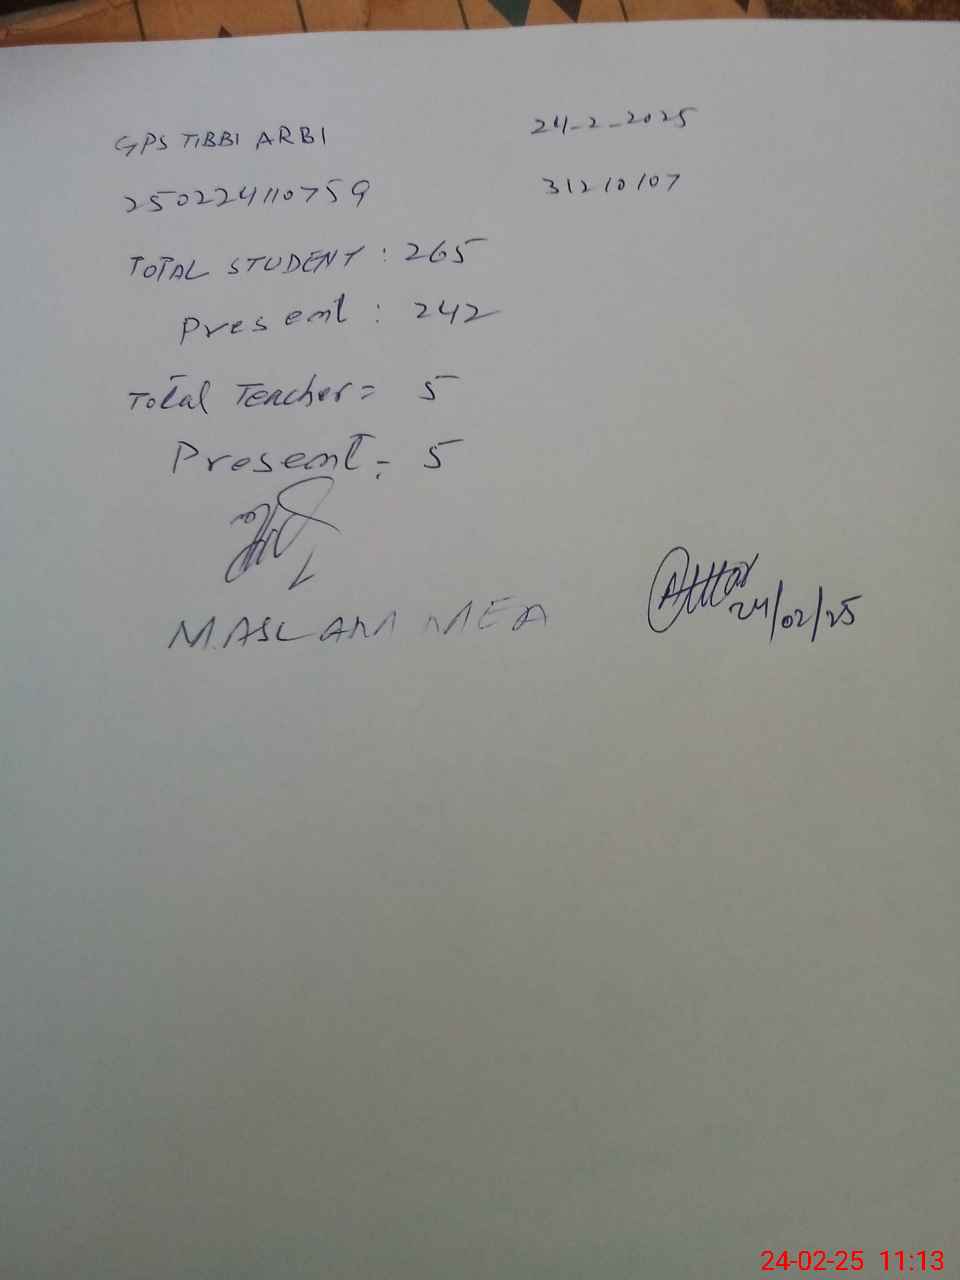 GPS TIBBI ARBI 24-2-2025
250224110759 31210107
TOTAL STUDENT : 265
Present : 242
Total Teacher = 5
Present = 5
M. ASLAM MEA
24/02/25
24-02-25 11:13